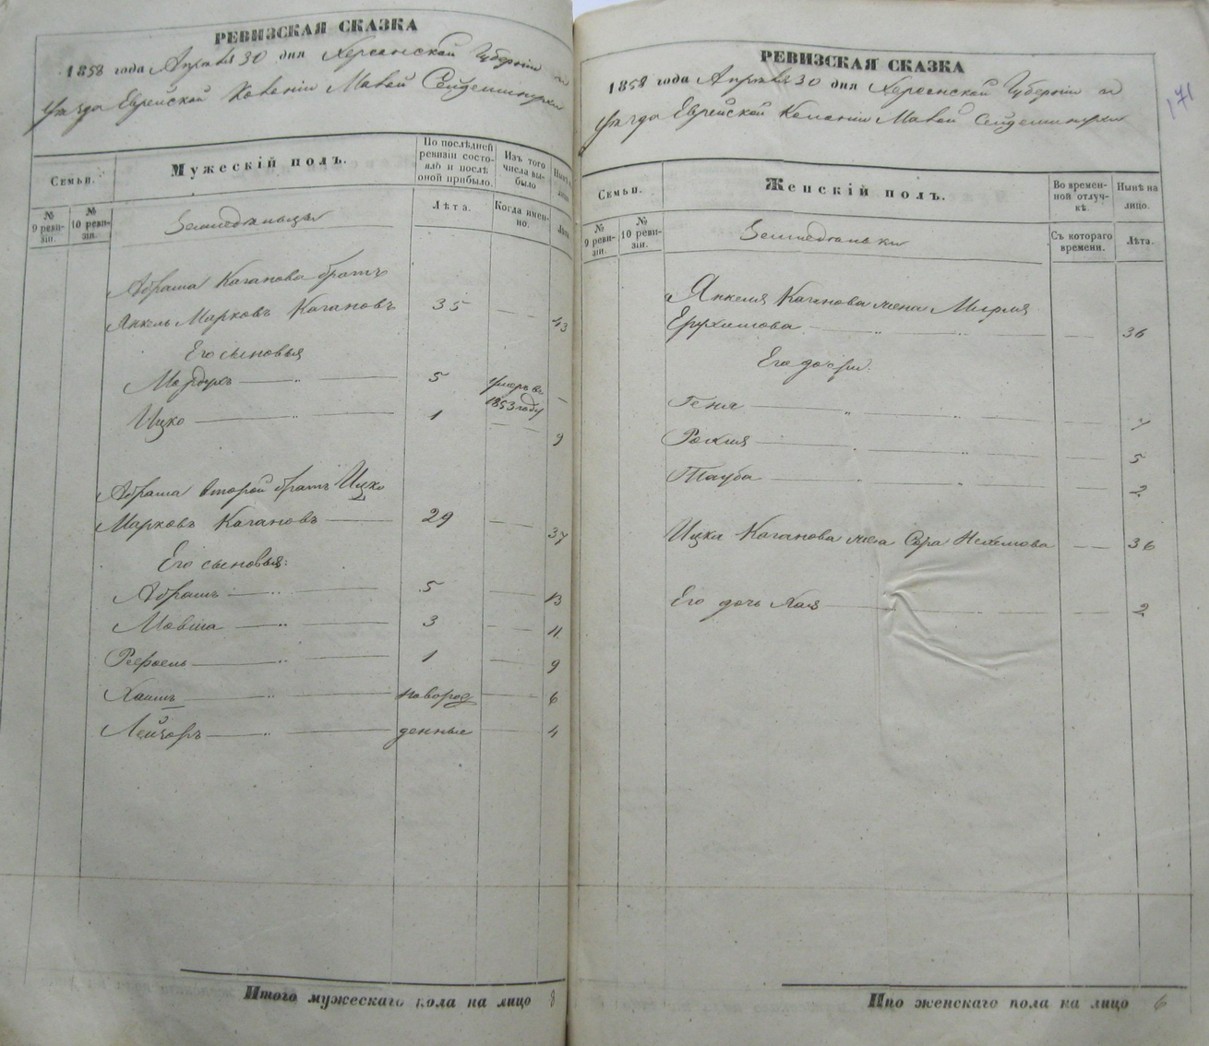 РЕВИЗСКАЯ СКАЗКА
1858 года Апреля 30 дня Херсонской Губернии и
уезда Еврейской Колонии Малой Сейдеминухи
Семьи.
Мужескій полъ.
По послѣдней ревизіи состояло и послѣ оной прибыло.
Изъ того числа выбыло
№ 9 ревизіи.
№ 10 ревизіи.
Земледельцы
Лѣта.
Когда именно.
Лѣта
Абраша Каганова братъ
Янкель Марковъ Кагановъ 35 — 43
Его сыновья
Мордухъ — „ — 5 умеръ въ 1853 году —
Ицко — „ — 1 — 9
Абраша второй братъ Ицко
Марковъ Кагановъ — 29 — 37
Его сыновья:
Абрамъ — „ — 5 — 13
Мовша — „ — 3 — 11
— „ — 1 — 9
Хаимъ — „ — новорож — 6
Лейзоръ — „ — денные — 4
Итого мужескаго пола на лицо 8
РЕВИЗСКАЯ СКАЗКА
171
1858 года Апреля 30 дня Херсонской Губернии и
уезда Еврейской Колонии Малой Сейдеминухи
Семьи.
Женскій полъ.
Во временной отлучкѣ.
Нынѣ на лицо.
№ 9 ревизіи.
№ 10 ревизіи.
Земледелки
Съ котораго времени.
Лѣта.
Янкеля Каганова жена Мирля
Ерухимова — „ — „ — — 36
Его дочери.
Геня — „ — „ — — 7
— „ — „ — — 5
Тауба — „ — „ — — 2
Ицка Каганова жена Сура — — 36
Его дочь Хая — „ — — 2
Итого женскаго пола на лицо 6